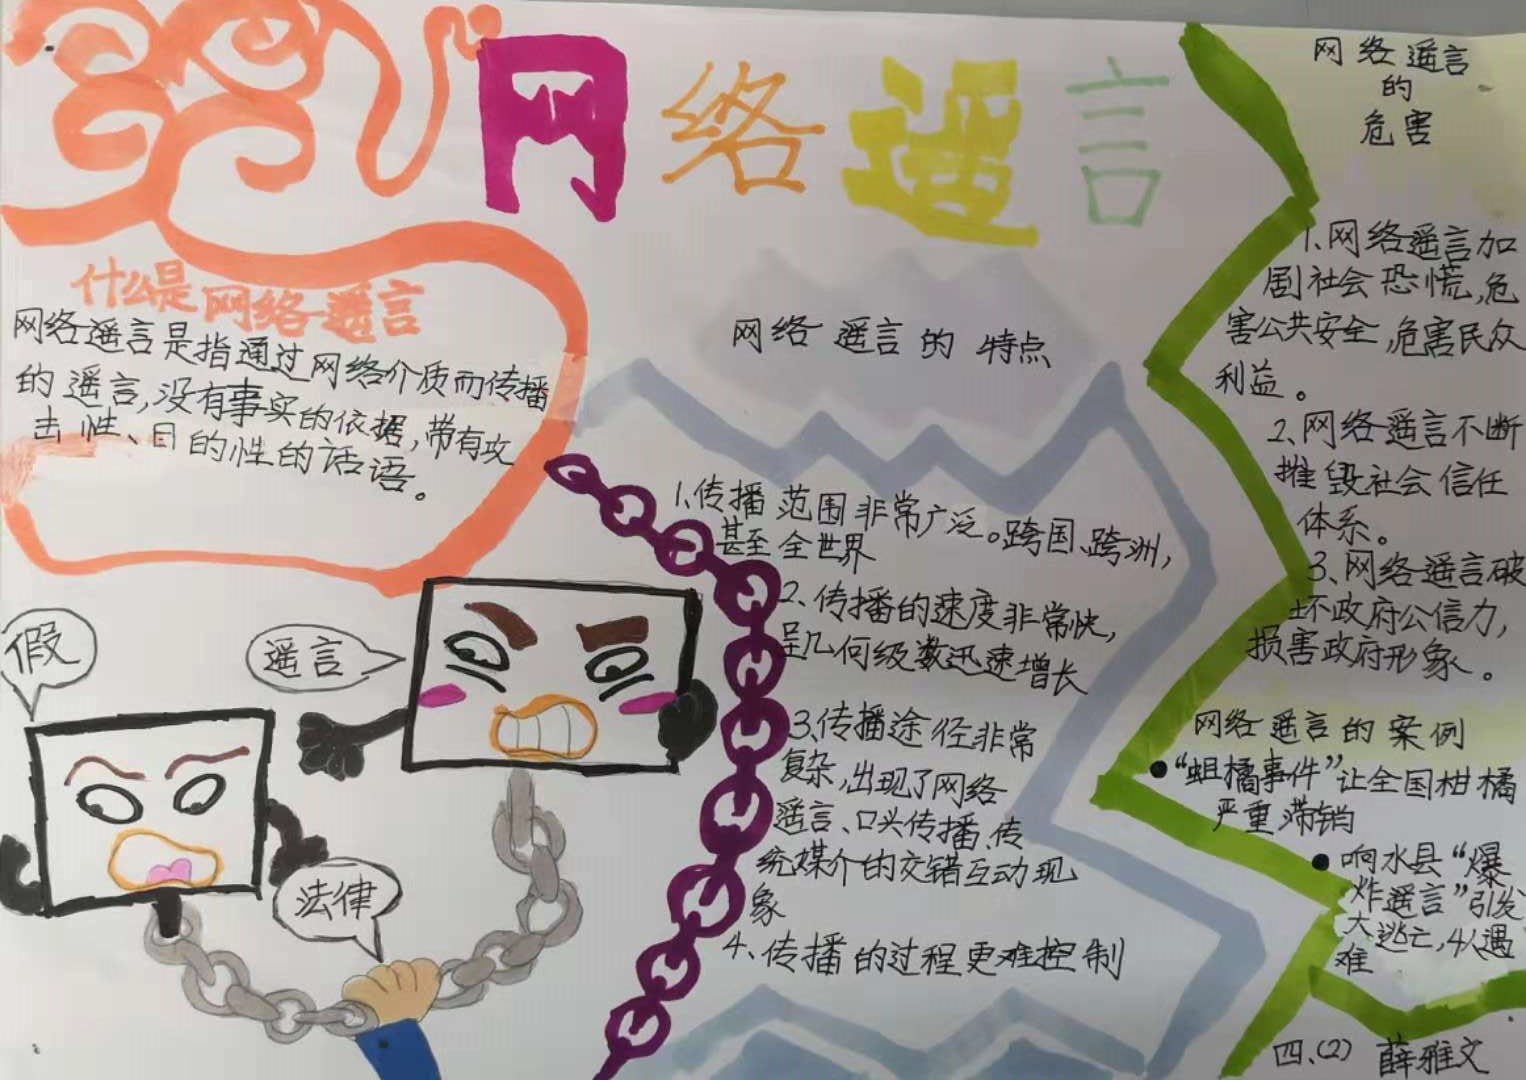 网络谣言
什么是网络谣言
网络谣言是指通过网络介质而传播
的谣言,没有事实的依据,带有攻
击性、目的性的话语。
假
谣言
法律
网络谣言的特点
1、传播范围非常广泛。跨国、跨洲,
甚至全世界
2、传播的速度非常快,
呈几何级数迅速增长
3、传播途径非常
复杂,出现了网络
谣言、口头传播、传
统媒介的交错互动现
象
4、传播的过程更难控制
网络谣言
的
危害
1、网络谣言加
剧社会恐慌,危
害公共安全,危害民众
利益。
2、网络谣言不断
摧毁社会信任
体系。
3、网络谣言破
坏政府公信力,
损害政府形象。
网络谣言的案例
“蛆橘事件”让全国柑橘
严重滞销
响水县“爆
炸谣言”引发
大逃亡,4人遇
难
四、(2) 薛雅文